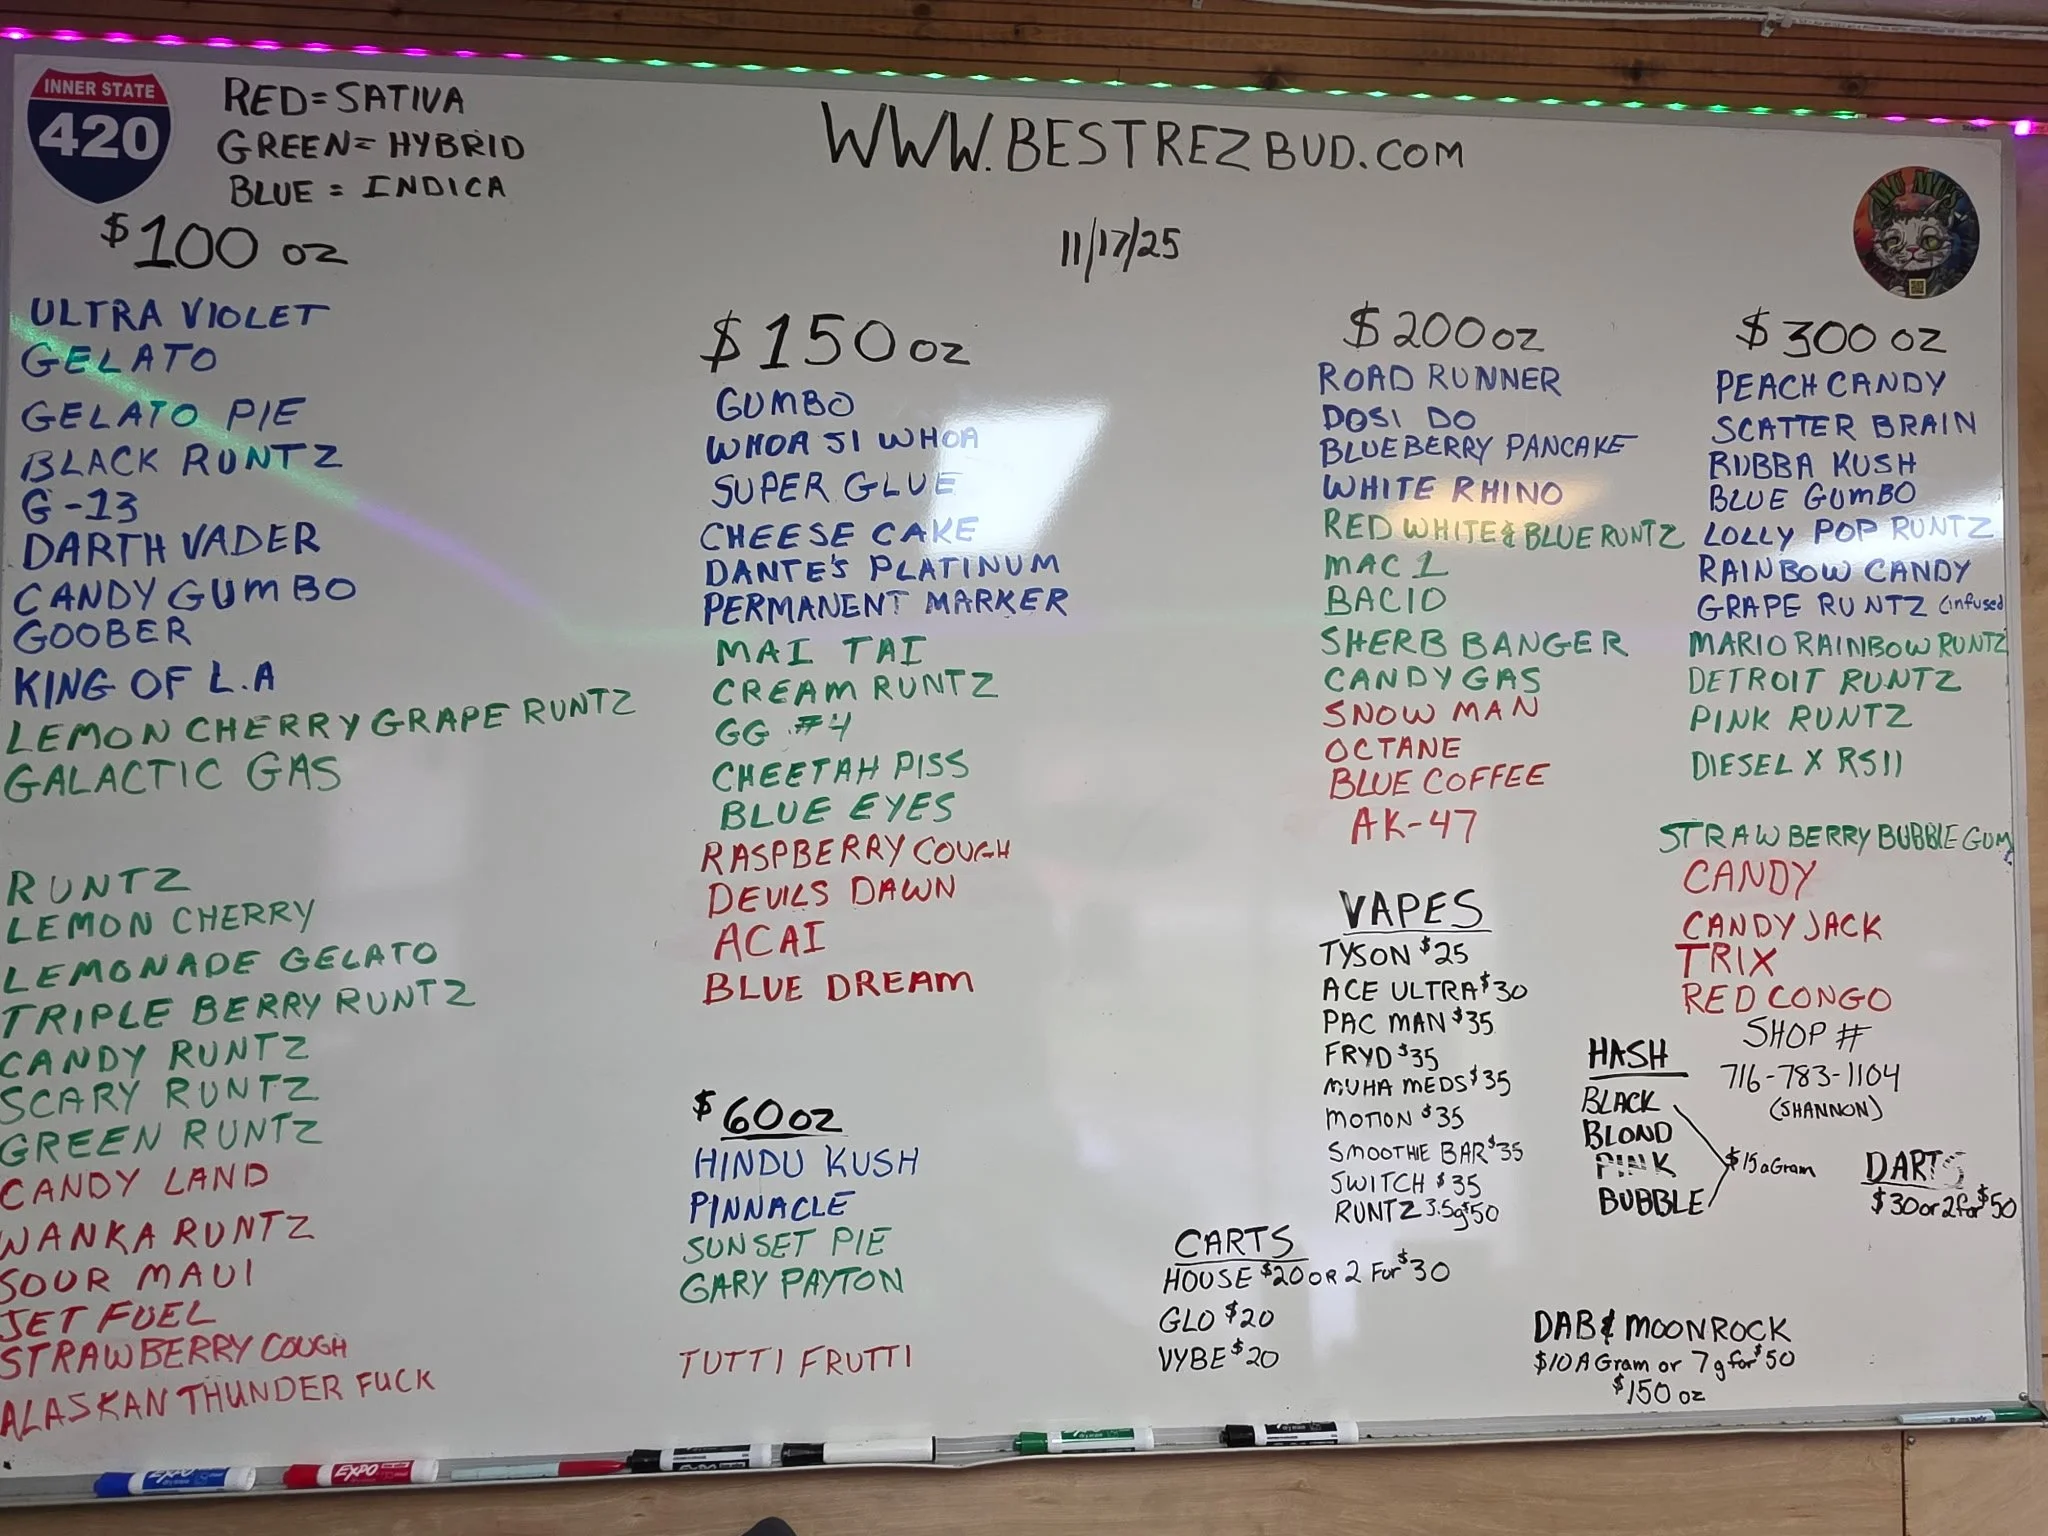 INNER STATE
420
RED=SATIVA
GREEN=HYBRID
BLUE=INDICA
WWW.BESTREZBUD.COM
11/17/25
$100 OZ
ULTRA VIOLET
GELATO
GELATO PIE
BLACK RUNTZ
G-13
DARTH VADER
CANDY GUMBO
GOOBER
KING OF L.A
LEMON CHERRY GRAPE RUNTZ
GALACTIC GAS
RUNTZ
LEMON CHERRY
LEMONADE GELATO
TRIPLE BERRY RUNTZ
CANDY RUNTZ
SCARY RUNTZ
GREEN RUNTZ
CANDY LAND
WANKA RUNTZ
SOUR MAUI
JET FUEL
STRAWBERRY COUGH
ALASKAN THUNDER FUCK
$150 OZ
GUMBO
WHOA SI WHOA
SUPER GLUE
CHEESE CAKE
DANTE'S PLATINUM
PERMANENT MARKER
MAI TAI
CREAM RUNTZ
GG #4
CHEETAH PISS
BLUE EYES
RASPBERRY COUGH
DEVILS DAWN
ACAI
BLUE DREAM
$60 OZ
HINDU KUSH
PINNACLE
SUNSET PIE
GARY PAYTON
TUTTI FRUTTI
$200 OZ
ROAD RUNNER
DOSI DO
BLUEBERRY PANCAKE
WHITE RHINO
RED WHITE & BLUE RUNTZ
MAC 1
BACIO
SHERB BANGER
CANDY GAS
SNOW MAN
OCTANE
BLUE COFFEE
AK-47
$300 OZ
PEACH CANDY
SCATTER BRAIN
BUBBA KUSH
BLUE GUMBO
LOLLY POP RUNTZ
RAINBOW CANDY
GRAPE RUNTZ (infused
MARIO RAINBOW RUNTZ
DETROIT RUNTZ
PINK RUNTZ
DIESEL X RS11
STRAWBERRY BUBBLE GUM
CANDY
CANDY JACK
TRIX
RED CONGO
SHOP #
716-783-1104
(SHANNON)
VAPES
TYSON $25
ACE ULTRA $30
PAC MAN $35
FRYD $35
MUHA MEDS $35
MOTION $35
SMOOTHIE BAR $35
SWITCH $35
RUNTZ 3.5g $50
HASH
BLACK
BLOND
PINK
BUBBLE
$15 a Gram
DARTS
$30 or 2 for $50
CARTS
HOUSE $20 OR 2 For $30
GLO $20
VYBE $20
DAB & MOONROCK
$10 A Gram or 7g for $50
$150 OZ
EXPO
EXPO